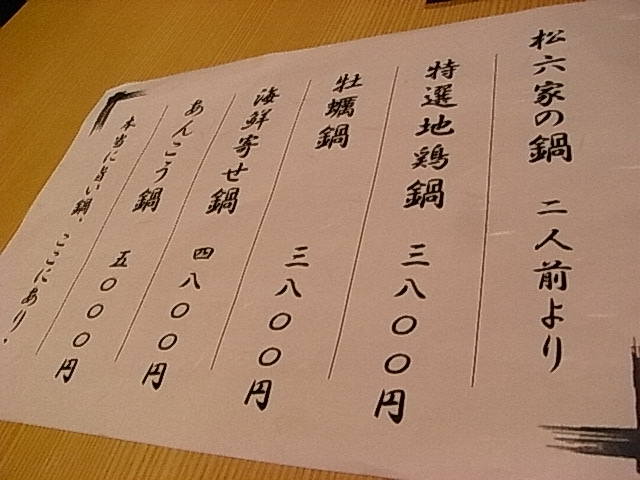 松六家の鍋 二人前より
特選地鶏鍋 三八〇〇円
牡蠣鍋 三八〇〇円
海鮮寄せ鍋 四八〇〇円
あんこう鍋 五〇〇〇円
本当に旨い鍋、ここにあり。